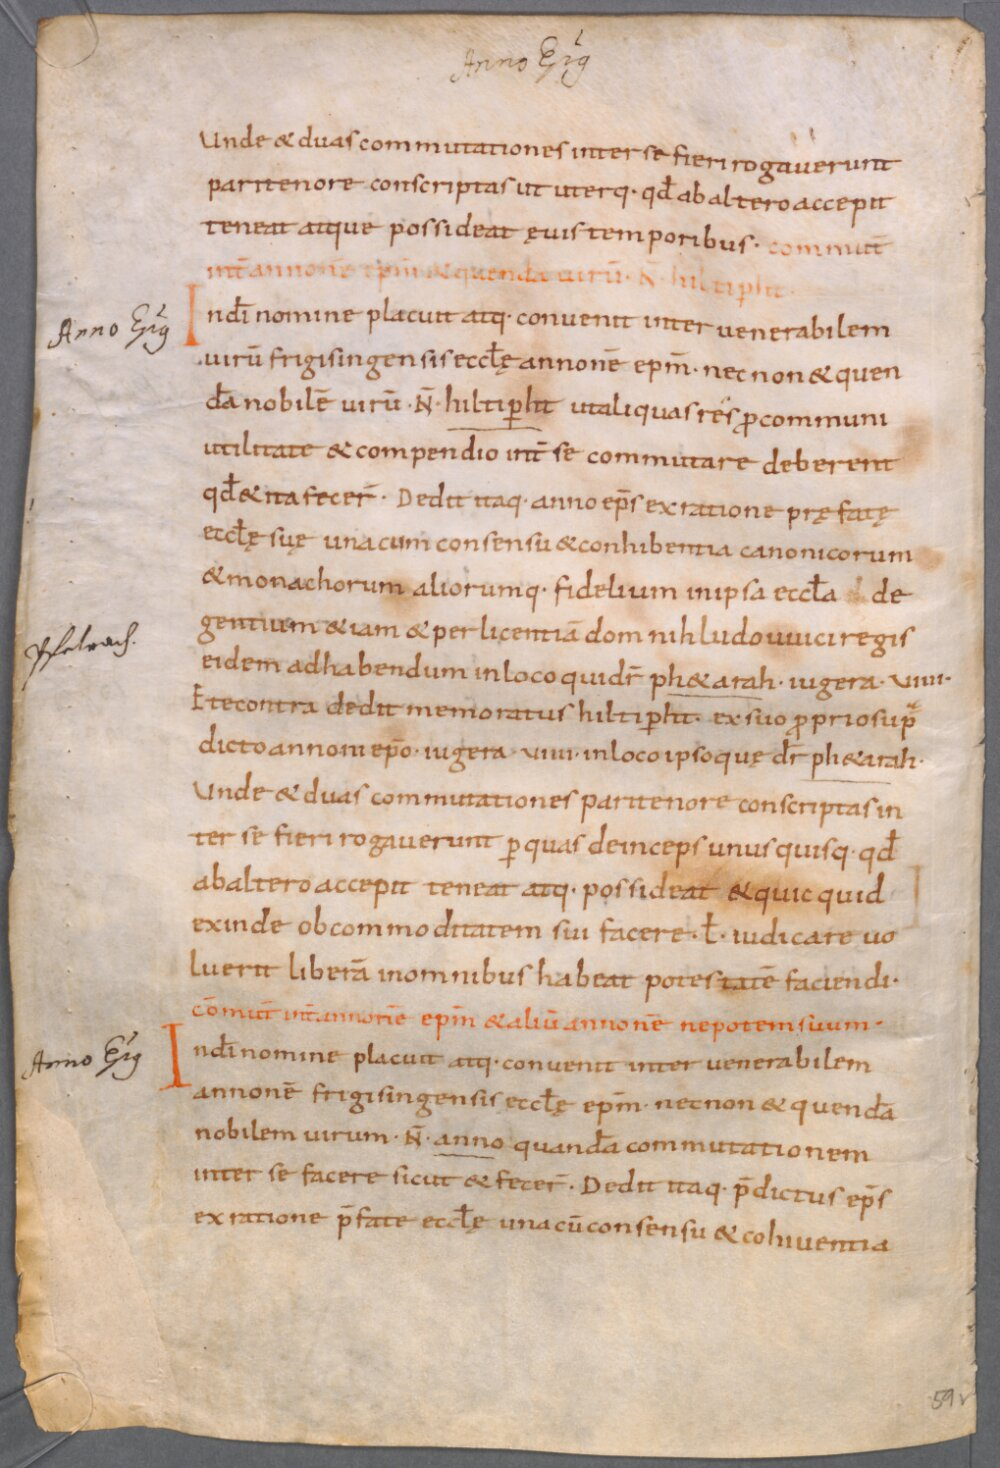 Anno Epĩg
Unde & duas commutationes inter se fieri rogaverunt
pari tenore conscriptas ut uterq· qđ ab altero accepit
teneat atque possideat ęvis temporibus· commut̄
int̄ annonē ep̄m & quendā virū· N̄· hiltiꝑht·
Anno Epĩg
In dī nomine placuit atq· convenit inter venerabilem
virū frigisingensis eccł̨ę annonē ep̄m· nec non & quen
dā nobilē virū· N̄· hiltiꝑht ut aliquas res ꝓ communi
utilitate & compendio int̄ se commutare deberent
qđ & ita fecer̄· Dedit itaq· anno ep̄s ex ratione pręfatę
eccłę suę una cum consensu & conhibentia canonicorum
& monachorum aliorumq· fidelium in ipsa eccła de
gentium & iam & per licentiā domni hludouuici regis
Pfetrach.
eidem ad habendum in loco qui dr̄ ph&arah· iugera· viiii·
Et econtra dedit memoratus hiltiꝑht· ex suo ꝓprio sup̄
dicto annoni ep̄o· iugera· viiii· in loco ipso quę dr̄ ph&arah·
Unde & duas commutationes pari tenore conscriptas in
ter se fieri rogaverunt ꝑ quas deinceps unusquisq· qđ
ab altero accepit teneat atq· possideat & quicquid
exinde ob commoditatem sui facere· ł· iudicare vo
luerit liberā in omnibus habeat potestatē faciendi·
cōmut̄ int̄ annonē ep̄m & aliū annonē nepotem suum·
Anno Epĩg
In dī nomine placuit atq· convenit inter venerabilem
annonē frigisingensis eccłę ep̄m· nec non & quendā
nobilem virum· N̄· anno quandā commutationem
inter se facere sicut & fecer̄· Dedit itaq· p̄dictus ep̄s
ex ratione p̄fate eccłę una cū consensu & cohiventia
59v